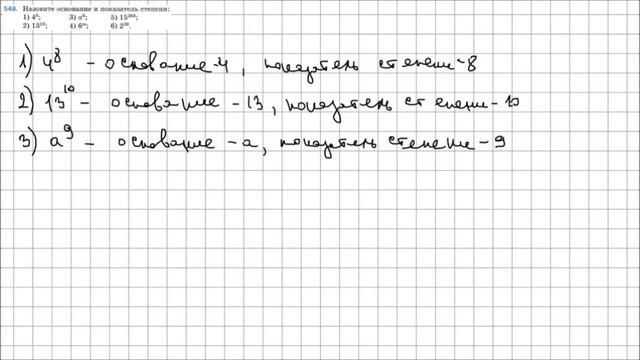 548. Назовите основание и показатель степени:
1) 4⁸; 3) a⁹; 5) 15²⁰⁸;
2) 13¹⁰; 4) 6ᵐ; 6) 2³⁹.
1) 4⁸ – основание-4, показатель степени-8
2) 13¹⁰ – основание -13, показатель степени-10
3) a⁹ – основание -a, показатель степени -9